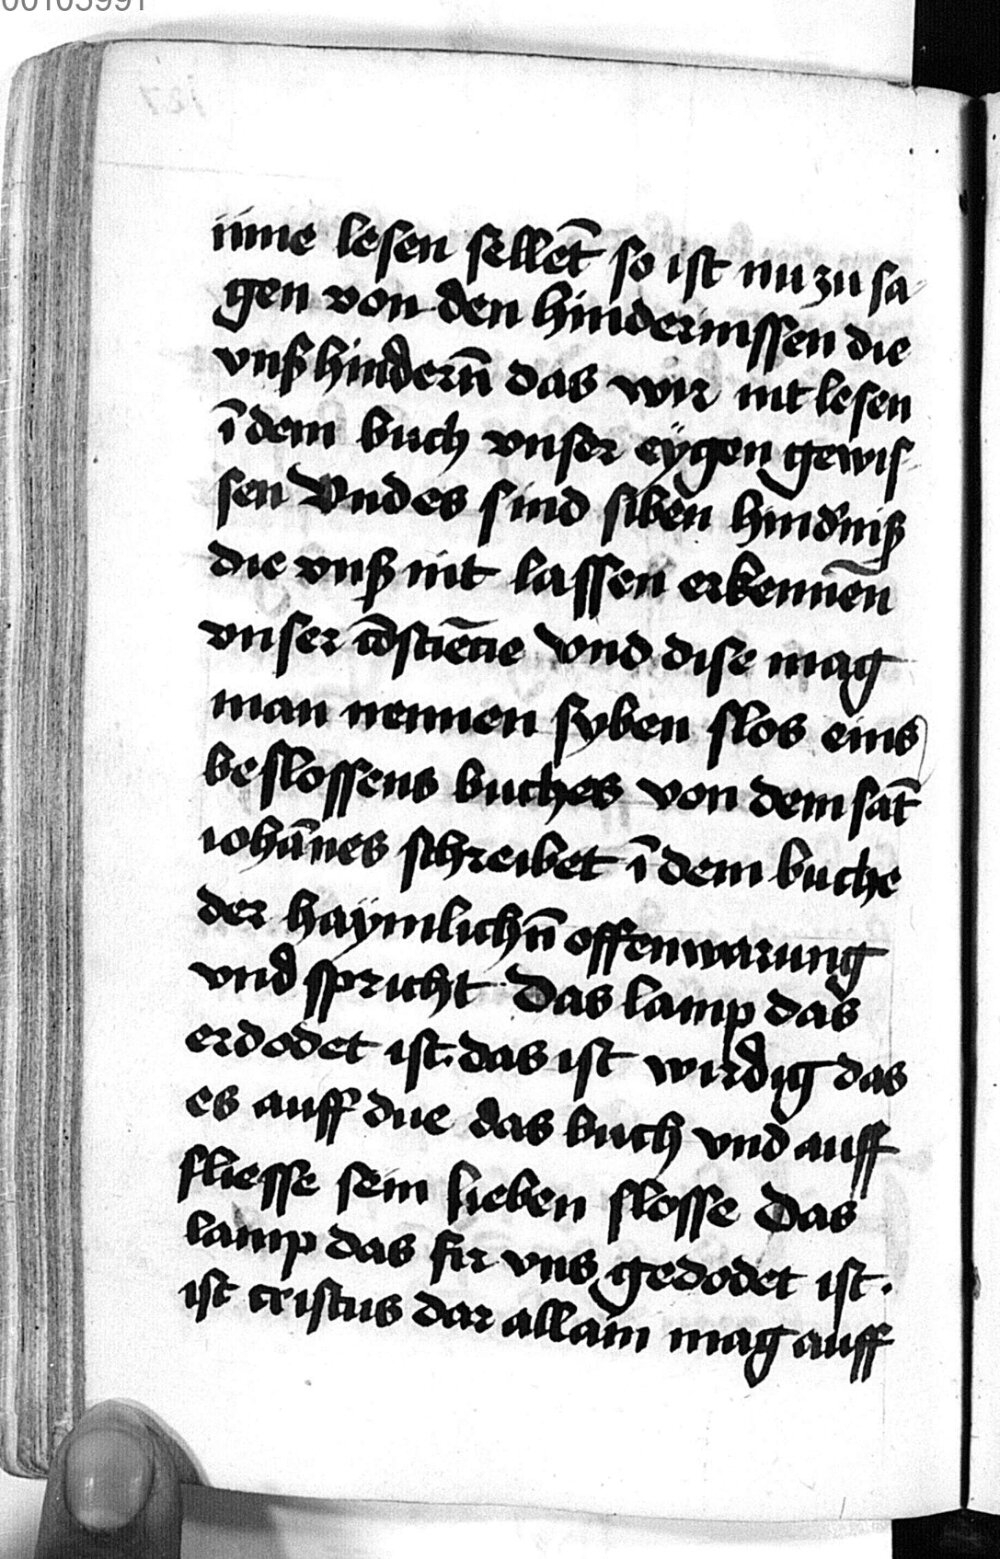 00103991
inne lesen sellet̄ so ist nu zu sa
gen von den hindernissen die
vnß hindern̄ das wir nit lesen
ī dem buch vnser eÿgen gewis
sen Vnd es sind siben hindniß
die vnß nit lassen erkennen̄
vnser cōsciēcie vnd dise mag
man nennen syben slos eins
beslossens buches von dem sāt
iohānes schreibet ī dem buche
der haÿmlichn̄ offenwarung
vnd spricht Das lamp das
erdodet ist. das ist wirdig das
es auff due das buch vnd auff
sliesse sein sieben slosse Das
lamp das fir vns gedodet ist.
ist cristus dar allain mag auff